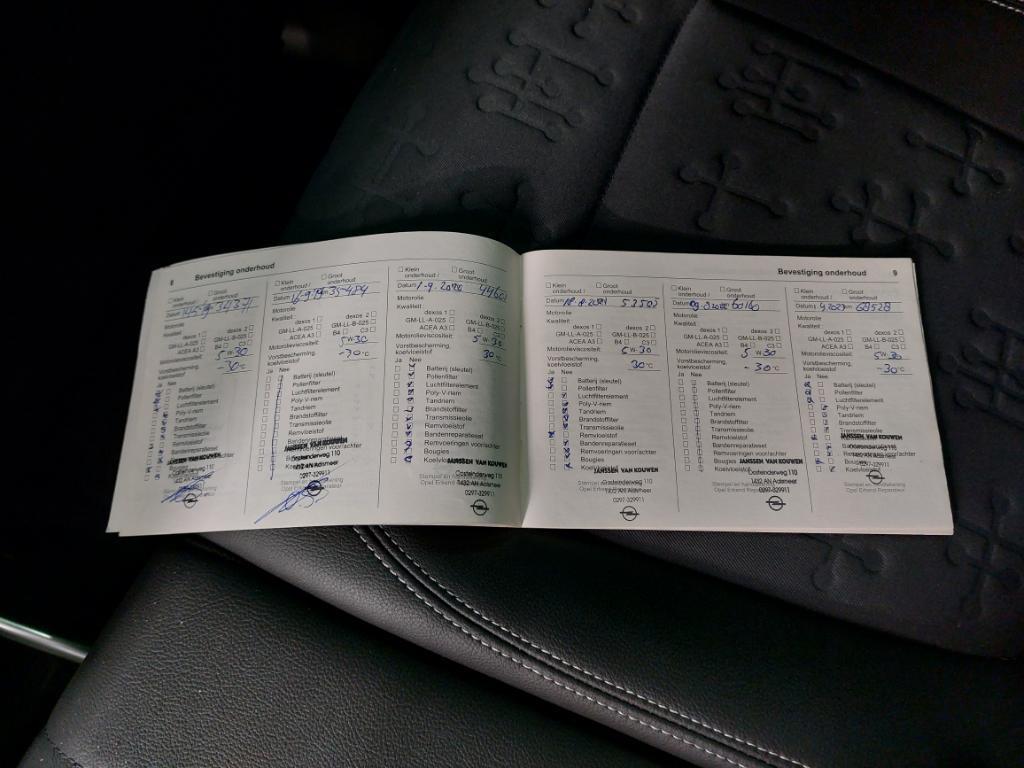 8 Bevestiging onderhoud
Klein onderhoud / Groot onderhoud
Datum
Motorolie
Kwaliteit:
dexos 1 dexos 2
GM-LL-A-025 GM-LL-B-025
ACEA A3 B4 C3
Motorolieviscositeit: 5W30
Vorstbescherming, koelvloeistof -30°C
Ja Nee
Batterij (sleutel)
Pollenfilter
Luchtfilterelement
Poly-V-riem
Tandriem
Brandstoffilter
Transmissieolie
Remvloeistof
Bandenreparatieset
Remvoeringen voor/achter
Bougies
Koelvloeistof
JANSSEN VAN KOUWEN
Klein onderhoud / Groot onderhoud
Datum 16-9-19 35-484
Motorolie
Kwaliteit:
dexos 1 dexos 2
GM-LL-A-025 GM-LL-B-025
ACEA A3 B4 C3
Motorolieviscositeit: 5W30
Vorstbescherming, koelvloeistof -30°C
Ja Nee
Batterij (sleutel)
Pollenfilter
Luchtfilterelement
Poly-V-riem
Tandriem
Brandstoffilter
Transmissieolie
Remvloeistof
Bandenreparatieset
JANSSEN VAN KOUWEN
Oosteinderweg 110
1432 AN Aalsmeer
0297-329911
Klein onderhoud / Groot onderhoud
Datum 1-9-2020
Motorolie
Kwaliteit:
dexos 1 dexos 2
GM-LL-A-025 GM-LL-B-025
ACEA A3 B4 C3
Motorolieviscositeit: 5W30
Vorstbescherming, koelvloeistof 30°C
Ja Nee
Batterij (sleutel)
Pollenfilter
Luchtfilterelement
Poly-V-riem
Tandriem
Brandstoffilter
Transmissieolie
Remvloeistof
Bandenreparatieset
Remvoeringen voor/achter
Bougies
Koelvloeistof
JANSSEN VAN KOUWEN
Oosteinderweg 110
1432 AN Aalsmeer
0297-329911
Bevestiging onderhoud 9
Klein onderhoud / Groot onderhoud
Datum 52503
Motorolie
Kwaliteit:
dexos 1 dexos 2
GM-LL-A-025 GM-LL-B-025
ACEA A3 B4 C3
Motorolieviscositeit: 5W30
Vorstbescherming, koelvloeistof 30°C
Ja Nee
Batterij (sleutel)
Pollenfilter
Luchtfilterelement
Poly-V-riem
Tandriem
Brandstoffilter
Transmissieolie
Remvloeistof
Bandenreparatieset
Remvoeringen voor/achter
Bougies
Koelvloeistof
JANSSEN VAN KOUWEN
Oosteinderweg 110
1432 AN Aalsmeer
0297-329911
Klein onderhoud / Groot onderhoud
Datum 60160
Motorolie
Kwaliteit:
dexos 1 dexos 2
GM-LL-A-025 GM-LL-B-025
ACEA A3 B4 C3
Motorolieviscositeit: 5W30
Vorstbescherming, koelvloeistof -30°C
Ja Nee
Batterij (sleutel)
Pollenfilter
Luchtfilterelement
Poly-V-riem
Tandriem
Brandstoffilter
Transmissieolie
Remvloeistof
Bandenreparatieset
Remvoeringen voor/achter
Bougies
JANSSEN VAN KOUWEN
Oosteinderweg 110
1432 AN Aalsmeer
0297-329911
Opel Erkend Reparateur
Klein onderhoud / Groot onderhoud
Datum 68528
Motorolie
Kwaliteit:
dexos 1 dexos 2
GM-LL-A-025 GM-LL-B-025
ACEA A3 B4 C3
Motorolieviscositeit: 5W30
Vorstbescherming, koelvloeistof -30°C
Ja Nee
Batterij (sleutel)
Pollenfilter
Luchtfilterelement
Poly-V-riem
Tandriem
Brandstoffilter
Transmissieolie
Remvloeistof
JANSSEN VAN KOUWEN
Oosteinderweg 110
1432 AN Aalsmeer
0297-329911
Opel Erkend Reparateur